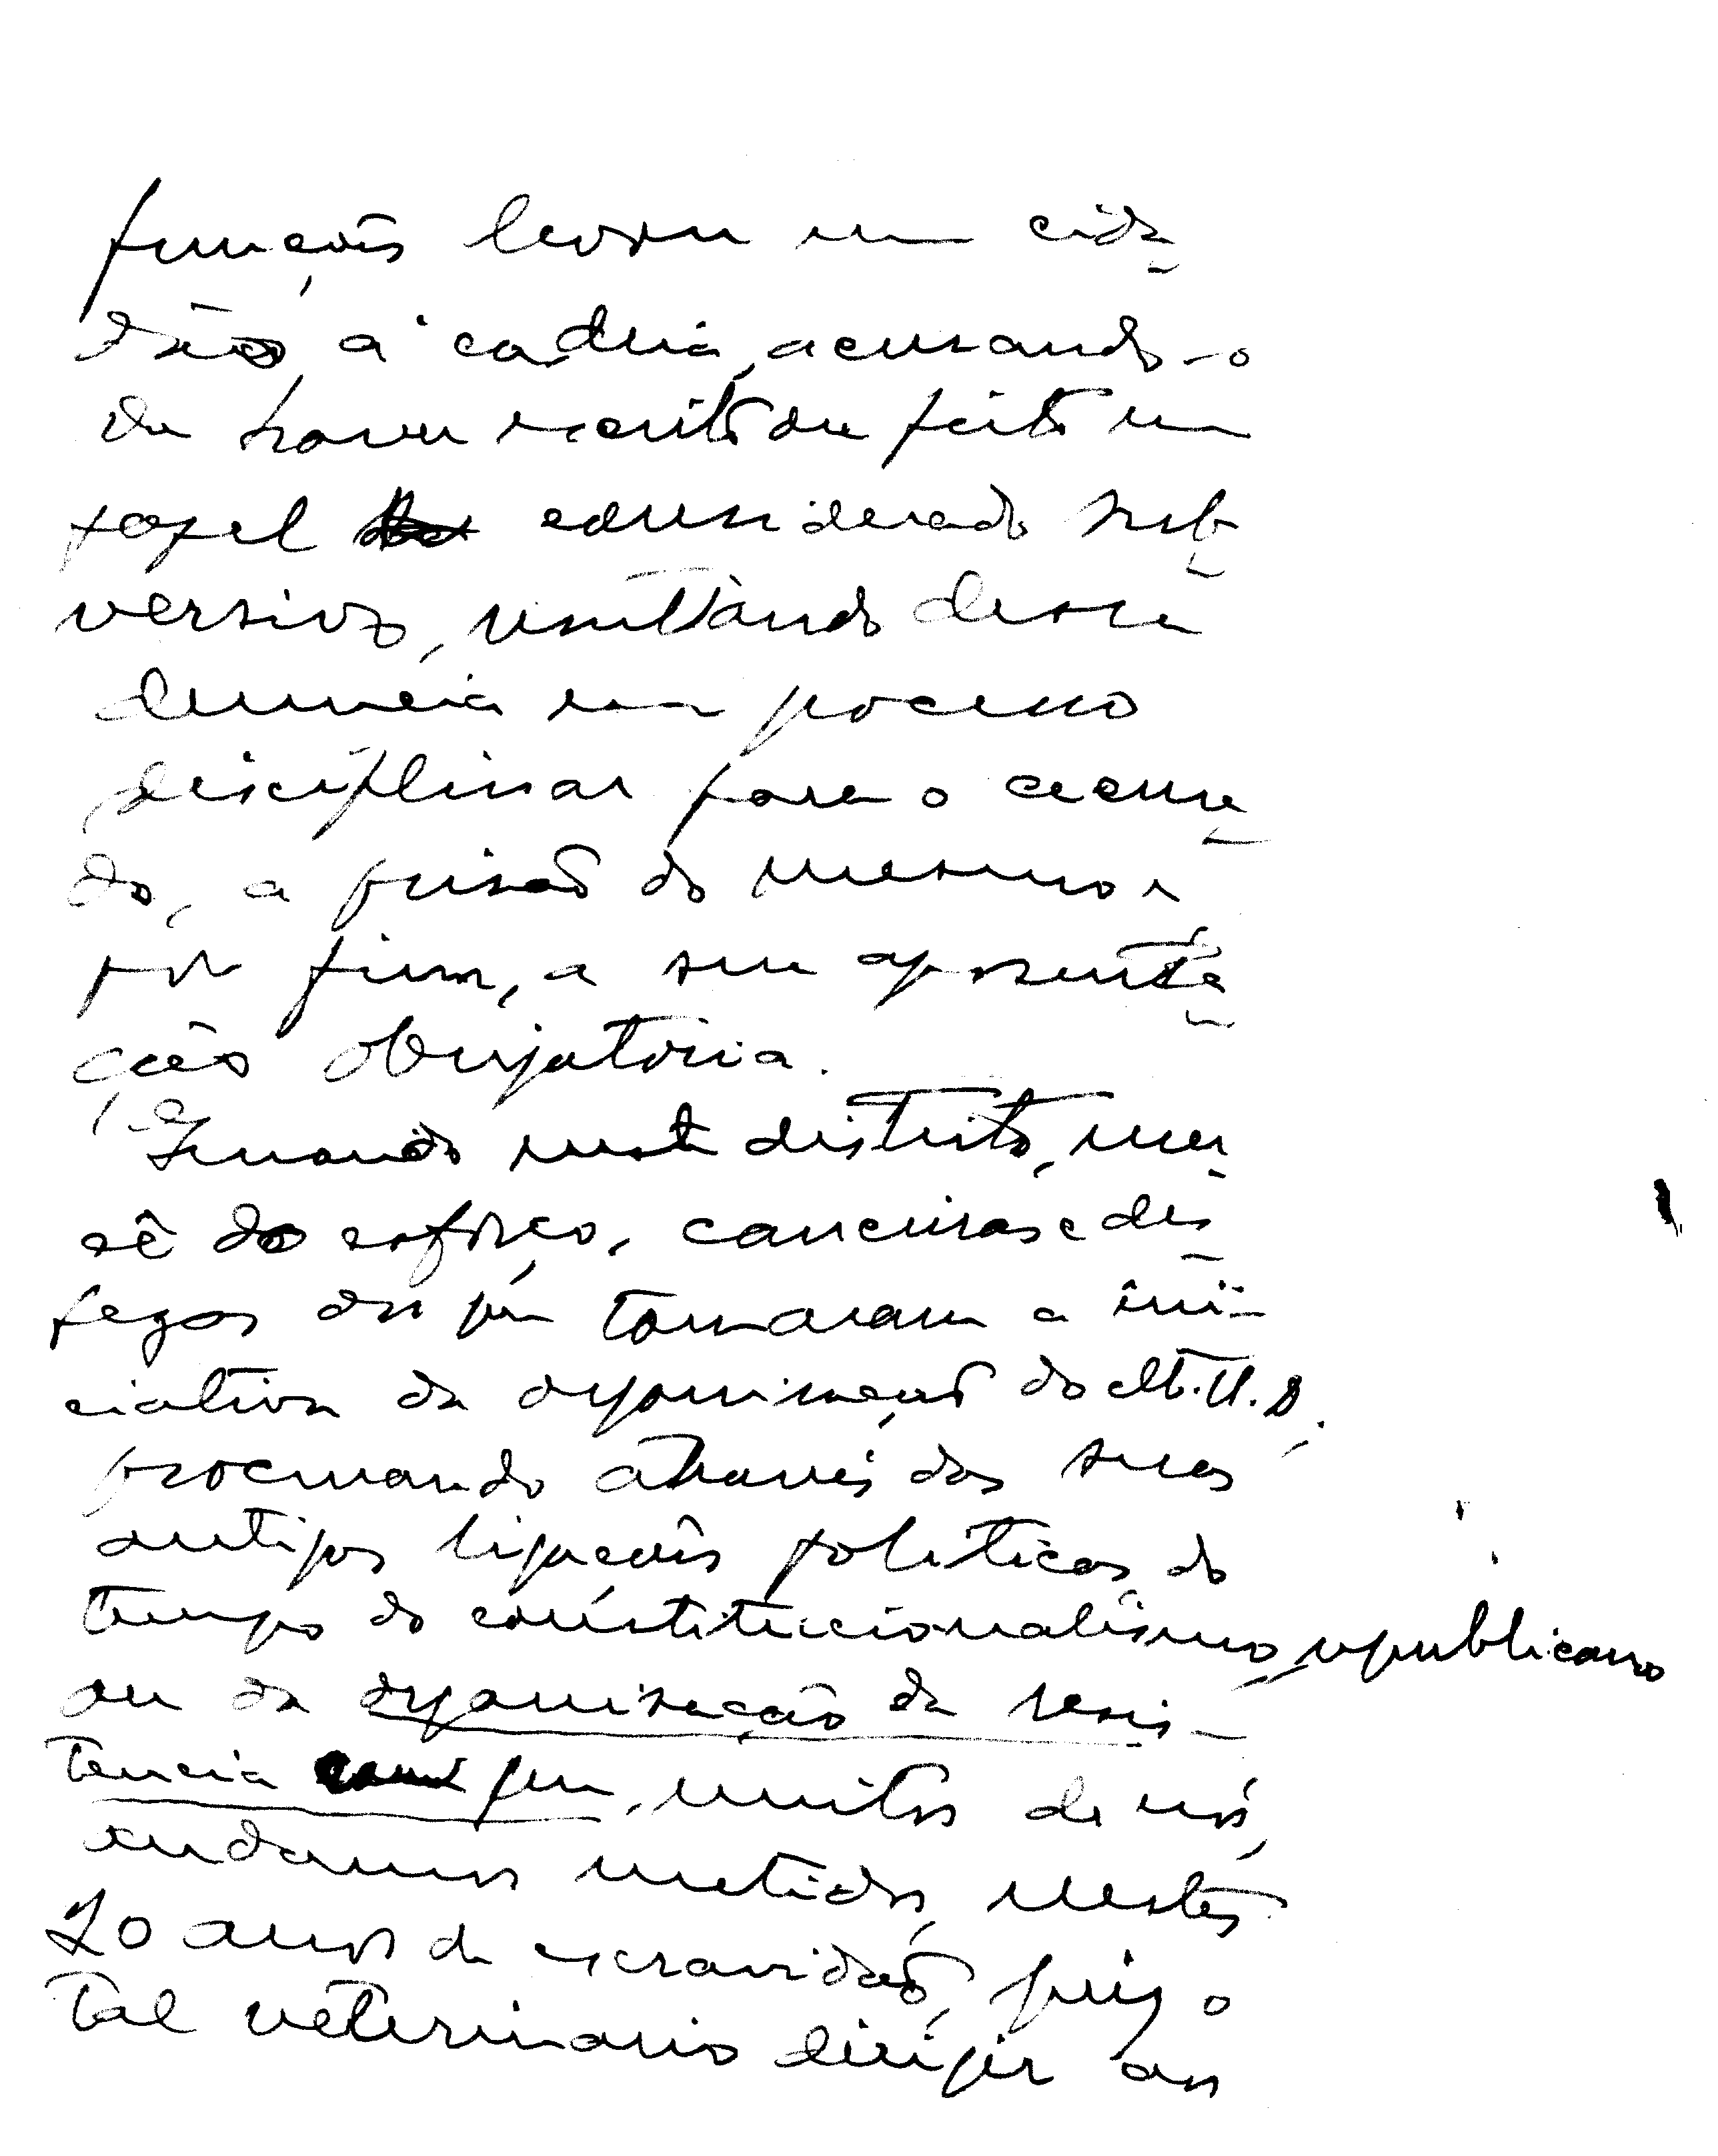 funções levou um cida-
dão á cadeia, acusando-o
de haver escrito ou feito um
papel considerado sub-
versivo, resultando dessa
denuncia um processo
disciplinar para o acusa-
do, a prisão do mesmo e
por fim, a sua aposenta-
ção obrigatoria.
Quando neste distrito, mer-
cê do esforço, canceiras e des-
pezas dos que tomaram a ini-
ciativa da organisação do M.U.D.,
procurando através das suas
antigas ligações políticas do
tempo do constitucionalismo republicano
ou da organisação da resis-
tencia em que, muitos de nós,
andamos metidos, nestes
20 anos de escravidão, quiz o
tal veterinario dirigir aos